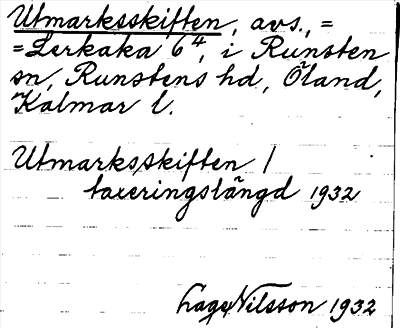 Utmarksskiften, avs., =
=Lerkaka 6⁴, i Runsten
sn, Runstens hd, Öland,
Kalmar l.
Utmarksskiften /
taxeringslängd 1932
Lage Nilsson 1932